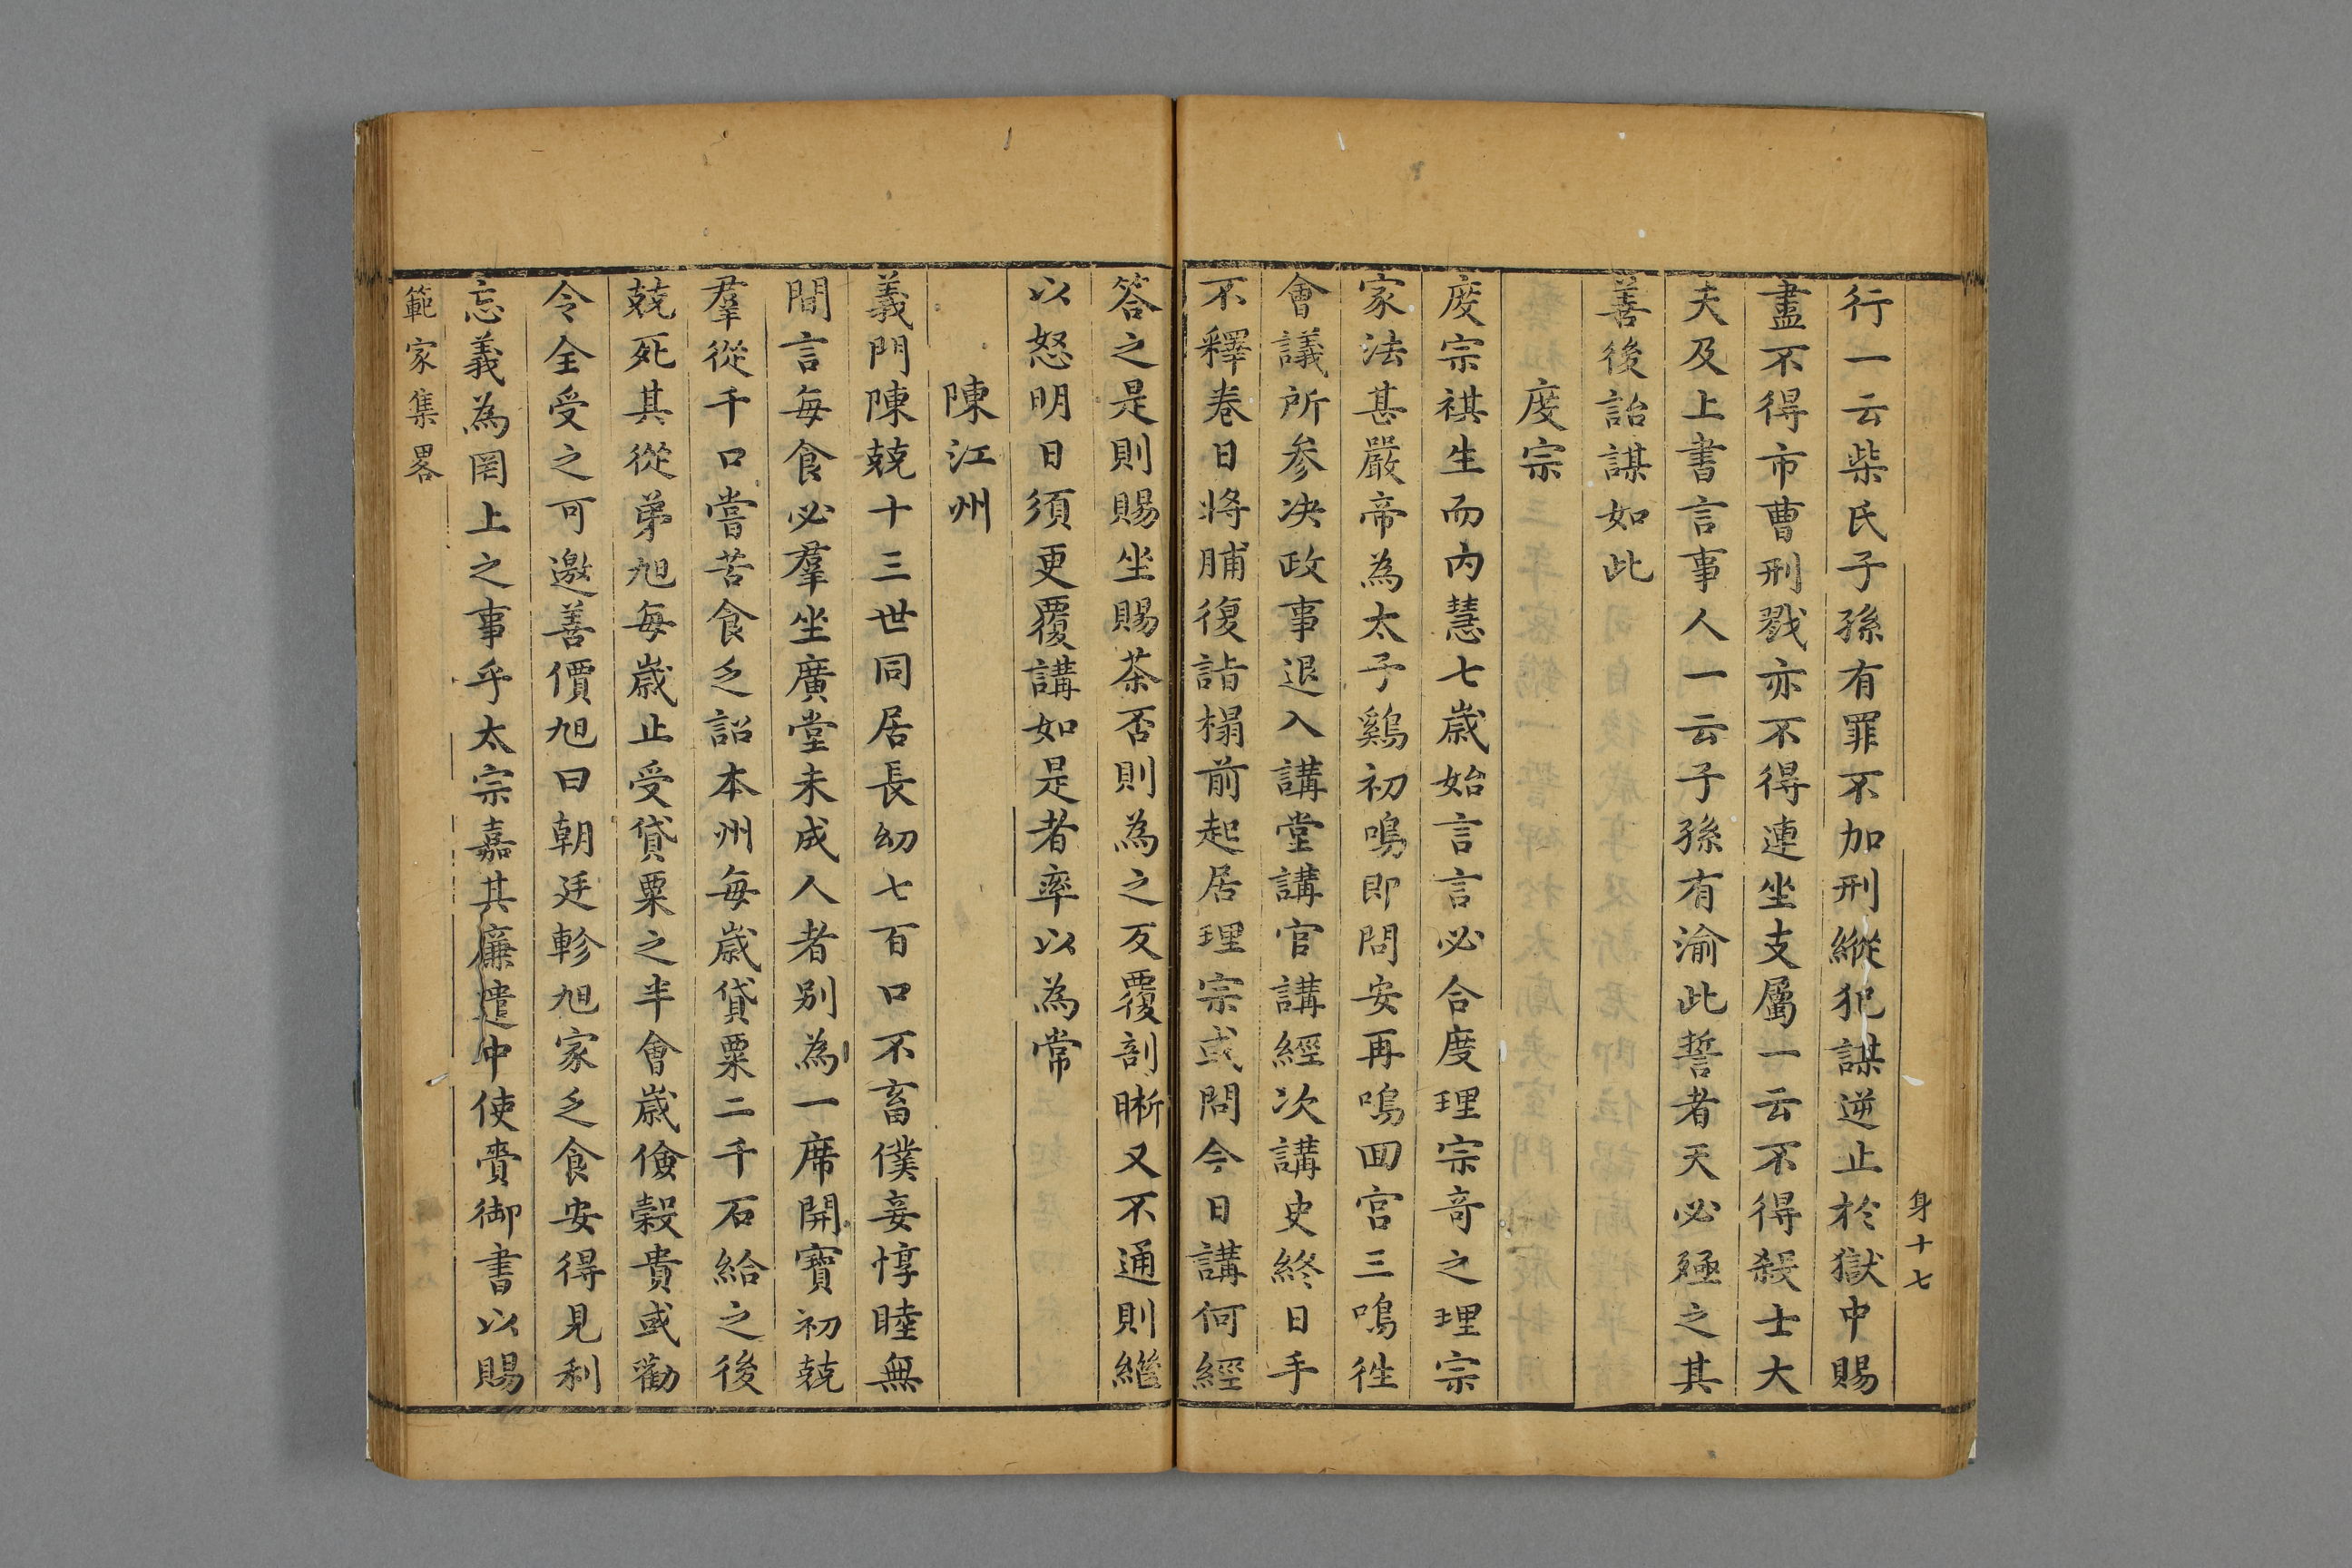 身十七
行一云柴氏子孫有罪不加刑縱犯謀逆止於獄中賜
盡不得市曹刑戮亦不得連坐支屬一云不得殺士大
夫及上書言事人一云子孫有渝此誓者天必殛之其
善後詒謀如此
度宗
度宗祺生而内慧七歳始言言必合度理宗竒之理宗
家法甚嚴帝為太子鷄初鳴即問安再鳴囬宫三鳴徃
會議所参决政事退入講堂講官講經次講史終日手
不釋卷日將脯復詣榻前起居理宗或問今日講何經
答之是則賜坐賜茶否則為之反覆剖晰又不通則繼
以怒明日須更覆講如是者率以為常
陳江州
義門陳兢十三世同居長㓜七百口不畜僕妾惇睦無
間言每食必羣坐廣堂未成人者别為一席開寳初兢
羣從千口嘗苦食乏詔本州每歳貸粟二千石給之後
兢死其從弟旭每歳止受貸粟之半會歳儉榖貴或勸
令全受之可邀善價旭曰朝廷軫旭家乏食安得見利
忘義為罔上之事乎太宗嘉其廉遣中使賫御書以賜
範家集畧